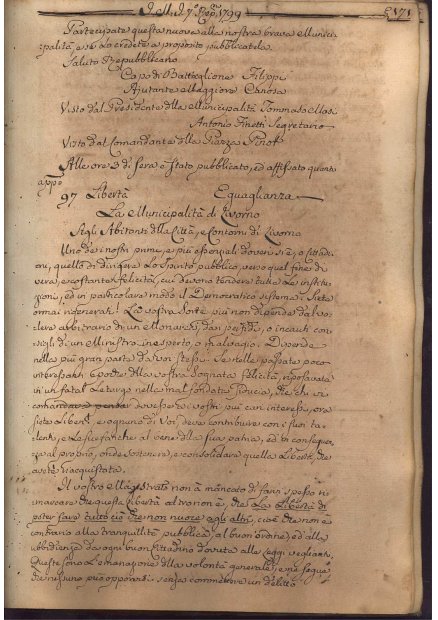 1799 171
Partecipate questa nuova alla nostra brava Munici
palità, e se lo credete a proposito pubblicatela.
Salute Repubblicano
Capo di Battaglione Filippi
Ajutante Maggiore Canosa
Visto dal Presidente della Municipalità Tommaso Masi
Antonio Finetti Segretario
Visto dal Comandante della Piazza Pinot
Alle ore 3 di sera è stato pubblicato, ed affissato quanto
app.º
97 Libertà Eguaglianza
La Municipalità di Livorno
Agli Abitanti della Città, e Contorni di Livorno
Uno dei nostri primi, e più essenziali doveri si è, o Cittadi
ni, quello di dirigere lo Spirito pubblico verso quel fine di
vera, e costante felicità, cui devono tendere tutte le institu
zioni, ed in particolare modo il Democratico sistema: Siete
ormai rigenerati. La vostra Sorte più non dipende dal vo
lere arbitrario di un Monarca, dai perfidi, o incauti con
sigli di un Ministro inesperto, o malvagio. Dipende
nella più gran parte da voi stessi. Se nelle passate poco
interessanti Epoche della vostra sognata felicità riposavate
in un fatal Letargo nella mal fondata fiducia, che chi vi
comandava pensar dovesse ai vostri più cari interessi, ora
siete Liberi, e ognuno di Voi deve contribuire con i suoi ta
lenti, e le sue fatiche al bene della sua patria, ed in conseguen
za al proprio, onde sostenere, e consolidare quella Libertà, che
avete riacquistata.
Il vostro Magistrato non à mancato di farvi spesso ri
marcare che questa Libertà altro non è, che La Libertà di
poter fare tutto ciò che non nuoce agli altri, cioè che non è
contrario alla tranquillità pubblica, al buon ordine, ed alla
ubbidienza da ogni buon Cittadino dovuta alle Leggi veglianti.
Queste sono l'emanazione della volontà generale, e ne segue
che nessuno può opporvisi senza commettere un delitto